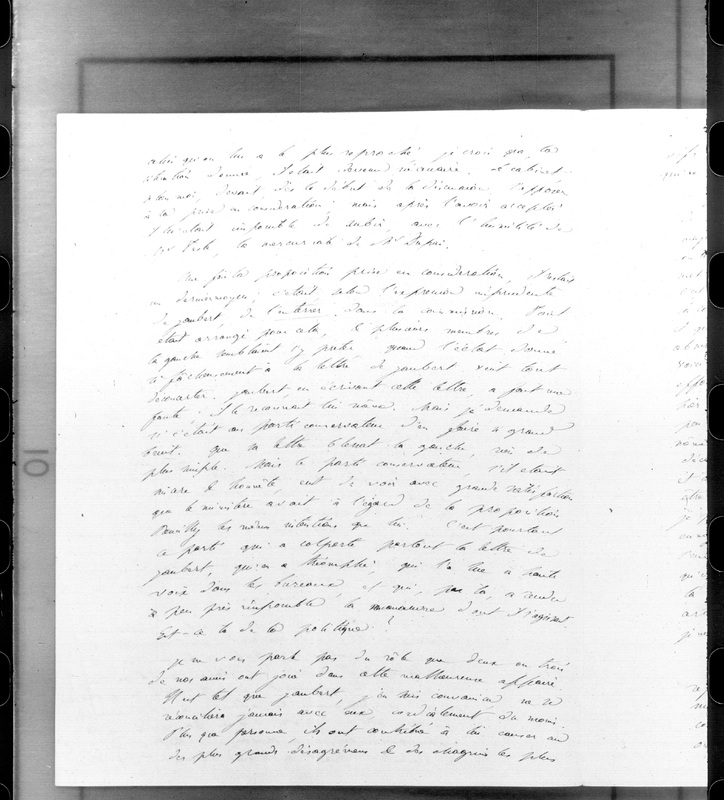 celui qu'on lui a le plus reproché je crois que, la
situation donnée, il était devenu nécessaire. Le cabinet,
selon moi, devait dès le début de la discussion, s'opposer
à la prise en considération; mais après l'avoir acceptée
il lui était impossible de subir, avec l'humilité de
la mercuriale de Mr Dupin.
Une fois la proposition prise en considération, il restait
un dernier moyen; c'était selon l'expression imprudente
de Jaubert, de l'enterrer dans la commission. Tout
était arrangé pour cela, et plusieurs membres de
la gauche semblaient s'y prêter quand l'éclat donné
si fâcheusement à la lettre de Jaubert vint tout
déconcerter. Jaubert, en écrivant cette lettre, a fait une
faute; il le reconnait lui même. Mais je demande
si c'était au parti conservateur d'en faire si grand
bruit. que la lettre blessat la gauche, rien de
plus simple. Mais le parti conservateur, s'il était
sincère et honnête, eut dû voir avec grande satisfaction
que le ministère avait à l'égard de la proposition
Remilly les mêmes intentions que lui. C'est pourtant
ce parti qui a colporté partout la lettre de
Jaubert, qui en a triomphé qui l'a lue à haute
voix dans les bureaux, et qui, par là, a rendu
à peu près impossible la manoeuvre dont il s'agissait
Est-ce là de la politique?
Je ne vous parle pas du rôle que deux ou trois
de nos amis ont joué dans cette malheureuse affaire.
Il est tel que Jaubert, j'en suis convaincu ne se
réconciliera jamais avec eux, cordialement du moins.
Plus que personne ils ont contribué à lui causer un
des plus grands désagrémens et des chagrins les plus